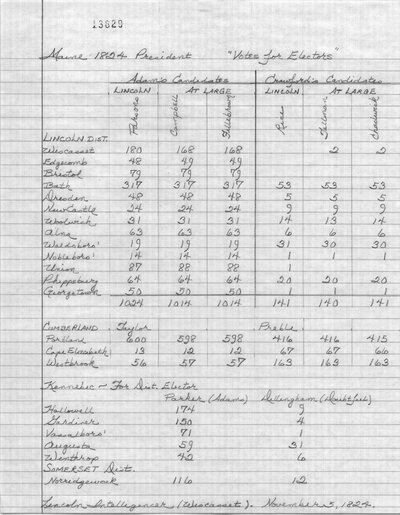 13829
Maine 1824 President "Votes for Electors"
Adams Candidates Crawford's Candidates
LINCOLN AT LARGE LINCOLN AT LARGE
Parsons Campbell Fillebrown Rice Fillman Chadwick
LINCOLN DIST.
Wiscasset 180 168 168 2 2
Edgecomb 48 49 49
Bristol 79 79 79
Bath 317 317 317 53 53 53
Dresden 48 48 48 5 5 5
New Castle 24 24 24 9 9 9
Woolwich 31 31 31 14 13 14
Alna 63 63 63 6 6 6
Waldoboro' 19 19 19 31 30 30
Nobleboro' 14 14 14 1 1 1
Union 87 88 88 1
Phippsburg 64 64 64 20 20 20
Georgetown 50 50 50 1
1024 1014 1014 141 140 141
CUMBERLAND Taylor Preble
Portland 600 598 598 416 416 415
Cape Elizabeth 13 12 12 67 67 66
Westbrook 56 57 57 163 163 163
Kennebec - For Dist. Elector
Parker (Adams) Dellingham (Doubtful)
Hallowell 174 9
Gardiner 150 4
Vassalboro' 71 1
Augusta 59 31
Winthrop 42 6
SOMERSET Dist.
Norridgewock 116 12
Lincoln Intelligencer (Wiscasset). November 5, 1824.